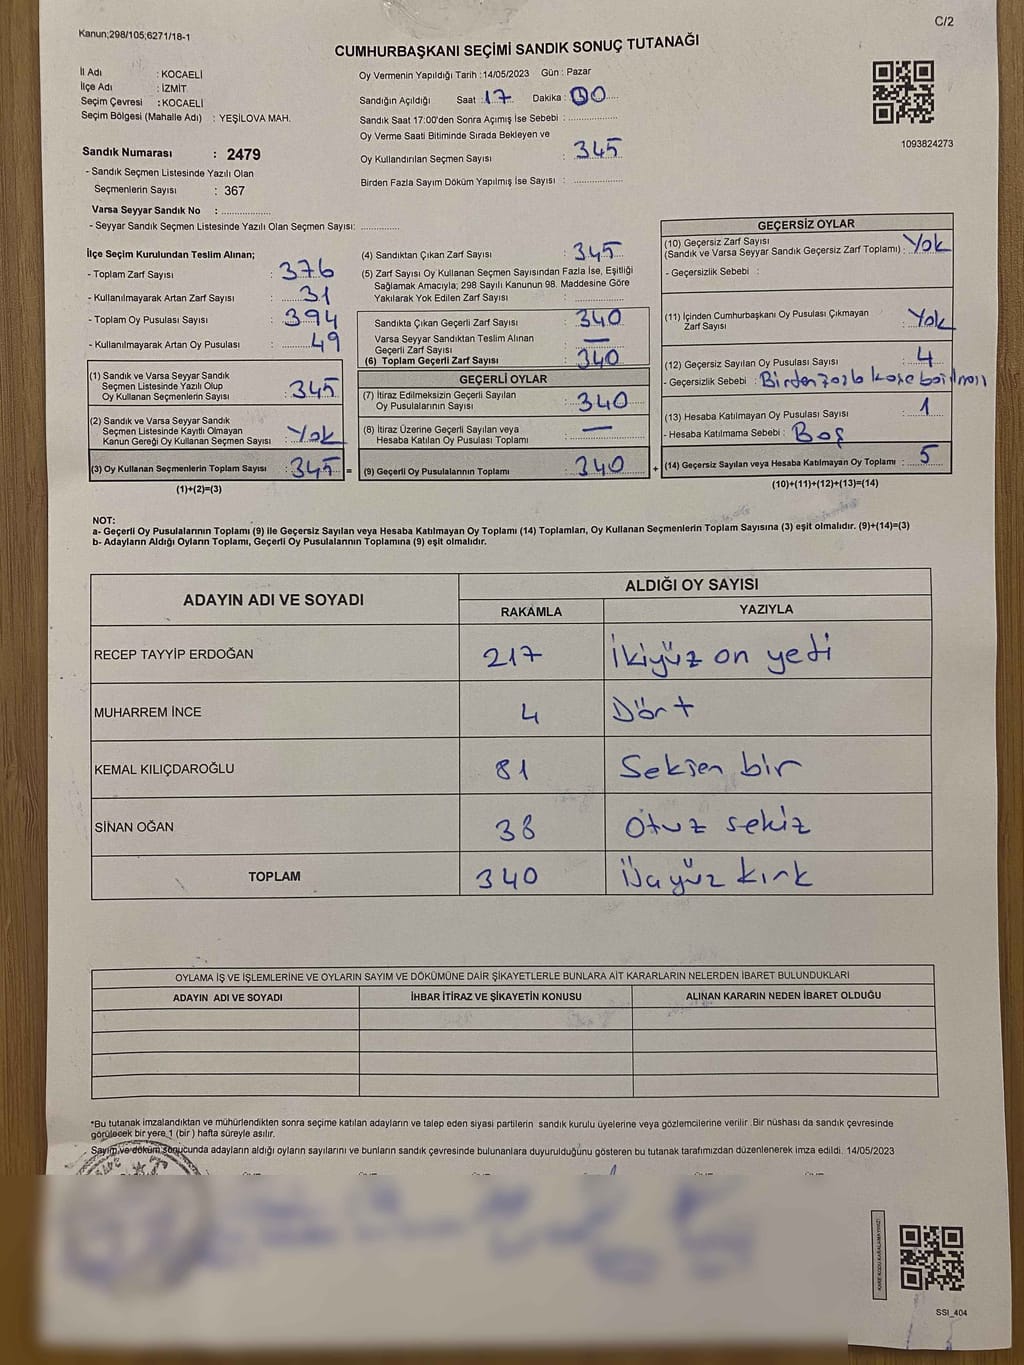 Kanun;298/105;6271/18-1
C/2
CUMHURBAŞKANI SEÇİMİ SANDIK SONUÇ TUTANAĞI
İl Adı : KOCAELİ
İlçe Adı : İZMİT
Seçim Çevresi : KOCAELİ
Seçim Bölgesi (Mahalle Adı) : YEŞİLOVA MAH.
Sandık Numarası : 2479
- Sandık Seçmen Listesinde Yazılı Olan
Seçmenlerin Sayısı : 367
Varsa Seyyar Sandık No : ...................
- Seyyar Sandık Seçmen Listesinde Yazılı Olan Seçmen Sayısı: .............
Oy Vermenin Yapıldığı Tarih :14/05/2023 Gün : Pazar
Sandığın Açıldığı Saat : 17 Dakika : 00
Sandık Saat 17:00'den Sonra Açımış İse Sebebi : ................
Oy Verme Saati Bitiminde Sırada Bekleyen ve
Oy Kullandırılan Seçmen Sayısı : 345
Birden Fazla Sayım Döküm Yapılmış İse Sayısı : ................
1093824273
İlçe Seçim Kurulundan Teslim Alınan;
- Toplam Zarf Sayısı : 376
- Kullanılmayarak Artan Zarf Sayısı : 31
- Toplam Oy Pusulası Sayısı : 394
- Kullanılmayarak Artan Oy Pusulası : 49
(1) Sandık ve Varsa Seyyar Sandık
Seçmen Listesinde Yazılı Olup
Oy Kullanan Seçmenlerin Sayısı : 345
(2) Sandık ve Varsa Seyyar Sandık
Seçmen Listesinde Kayıtlı Olmayan
Kanun Gereği Oy Kullanan Seçmen Sayısı : Yok
(3) Oy Kullanan Seçmenlerin Toplam Sayısı : 345 =
(1)+(2)=(3)
(4) Sandıktan Çıkan Zarf Sayısı : 345
(5) Zarf Sayısı Oy Kullanan Seçmen Sayısından Fazla İse, Eşitliği
Sağlamak Amacıyla; 298 Sayılı Kanunun 98. Maddesine Göre
Yakılarak Yok Edilen Zarf Sayısı : ................
Sandıkta Çıkan Geçerli Zarf Sayısı : 340
Varsa Seyyar Sandıktan Teslim Alınan
Geçerli Zarf Sayısı : —
(6) Toplam Geçerli Zarf Sayısı : 340
GEÇERLİ OYLAR
(7) İtiraz Edilmeksizin Geçerli Sayılan
Oy Pusulalarının Sayısı : 340
(8) İtiraz Üzerine Geçerli Sayılan veya
Hesaba Katılan Oy Pusulası Toplamı : —
(9) Geçerli Oy Pusulalarının Toplamı : 340 +
GEÇERSİZ OYLAR
(10) Geçersiz Zarf Sayısı
(Sandık ve Varsa Seyyar Sandık Geçersiz Zarf Toplamı) : Yok
- Geçersizlik Sebebi :
(11) İçinden Cumhurbaşkanı Oy Pusulası Çıkmayan
Zarf Sayısı : Yok
(12) Geçersiz Sayılan Oy Pusulası Sayısı : 4
- Geçersizlik Sebebi : Birden
(13) Hesaba Katılmayan Oy Pusulası Sayısı : 1
- Hesaba Katılmama Sebebi : Boş
(14) Geçersiz Sayılan veya Hesaba Katılmayan Oy Toplamı : 5
(10)+(11)+(12)+(13)=(14)
NOT:
a- Geçerli Oy Pusulalarının Toplamı (9) ile Geçersiz Sayılan veya Hesaba Katılmayan Oy Toplamı (14) Toplamları, Oy Kullanan Seçmenlerin Toplam Sayısına (3) eşit olmalıdır. (9)+(14)=(3)
b- Adayların Aldığı Oyların Toplamı, Geçerli Oy Pusulalarının Toplamına (9) eşit olmalıdır.
ADAYIN ADI VE SOYADI
ALDIĞI OY SAYISI
RAKAMLA YAZIYLA
RECEP TAYYİP ERDOĞAN 217 İkiyüz on yedi
MUHARREM İNCE 4 Dört
KEMAL KILIÇDAROĞLU 81 Seksen bir
SİNAN OĞAN 38 Otuz sekiz
TOPLAM 340 Üçyüz kırk
OYLAMA İŞ VE İŞLEMLERİNE VE OYLARIN SAYIM VE DÖKÜMÜNE DAİR ŞİKAYETLERLE BUNLARA AİT KARARLARIN NELERDEN İBARET BULUNDUKLARI
ADAYIN ADI VE SOYADI İHBAR İTİRAZ VE ŞİKAYETİN KONUSU ALINAN KARARIN NEDEN İBARET OLDUĞU
*Bu tutanak imzalandıktan ve mühürlendikten sonra seçime katılan adayların ve talep eden siyasi partilerin sandık kurulu üyelerine veya gözlemcilerine verilir .Bir nüshası da sandık çevresinde
görülecek bir yere 1 (bir ) hafta süreyle asılır.
Sayım ve döküm sonucunda adayların aldığı oyların sayılarını ve bunların sandık çevresinde bulunanlara duyurulduğunu gösteren bu tutanak tarafımızdan düzenlenerek imza edildi. 14/05/2023
KARE KODU KARALAMAYINIZ!
SSI_404